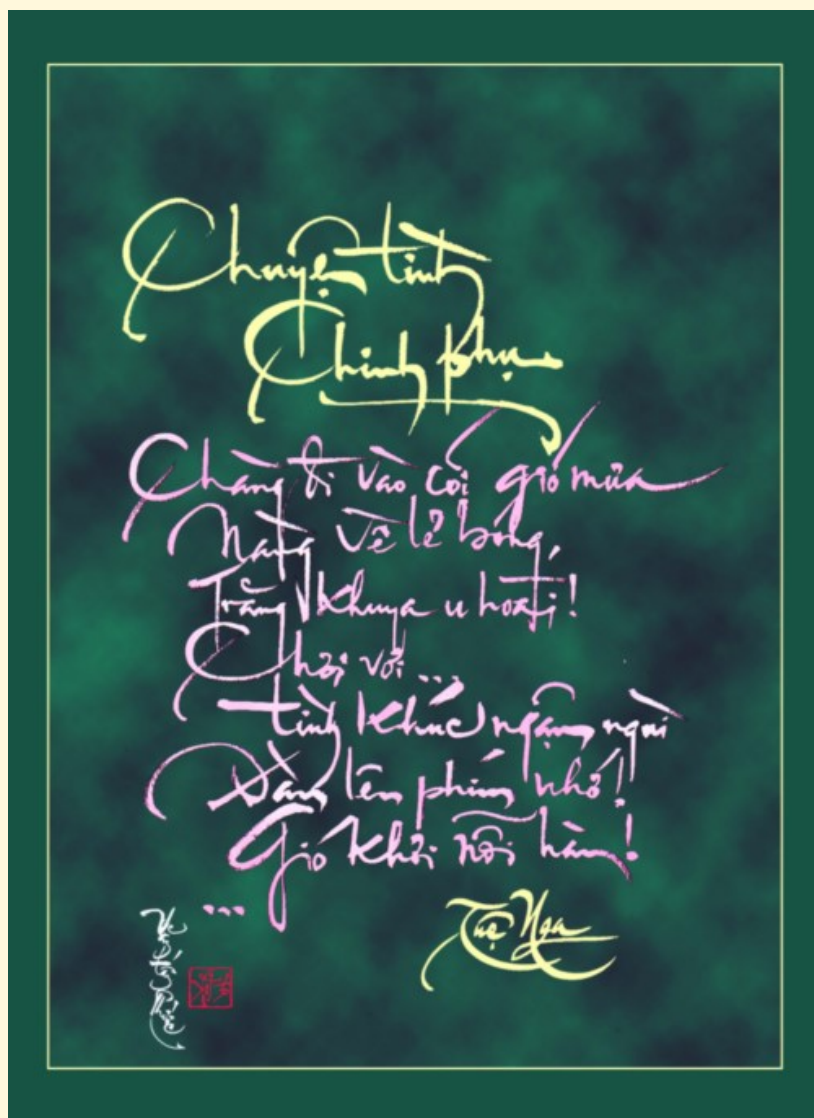 Chuyện tình
Chinh phụ
Chàng đi vào cõi gió mưa
Nàng về lẻ bóng,
Trăng khuya u hoài!
Chơi vơi ...
tình khúc ngậm ngùi
Đàn lên phím nhỏ!
Gió khơi nỗi hàn!
...
Tuệ Nga